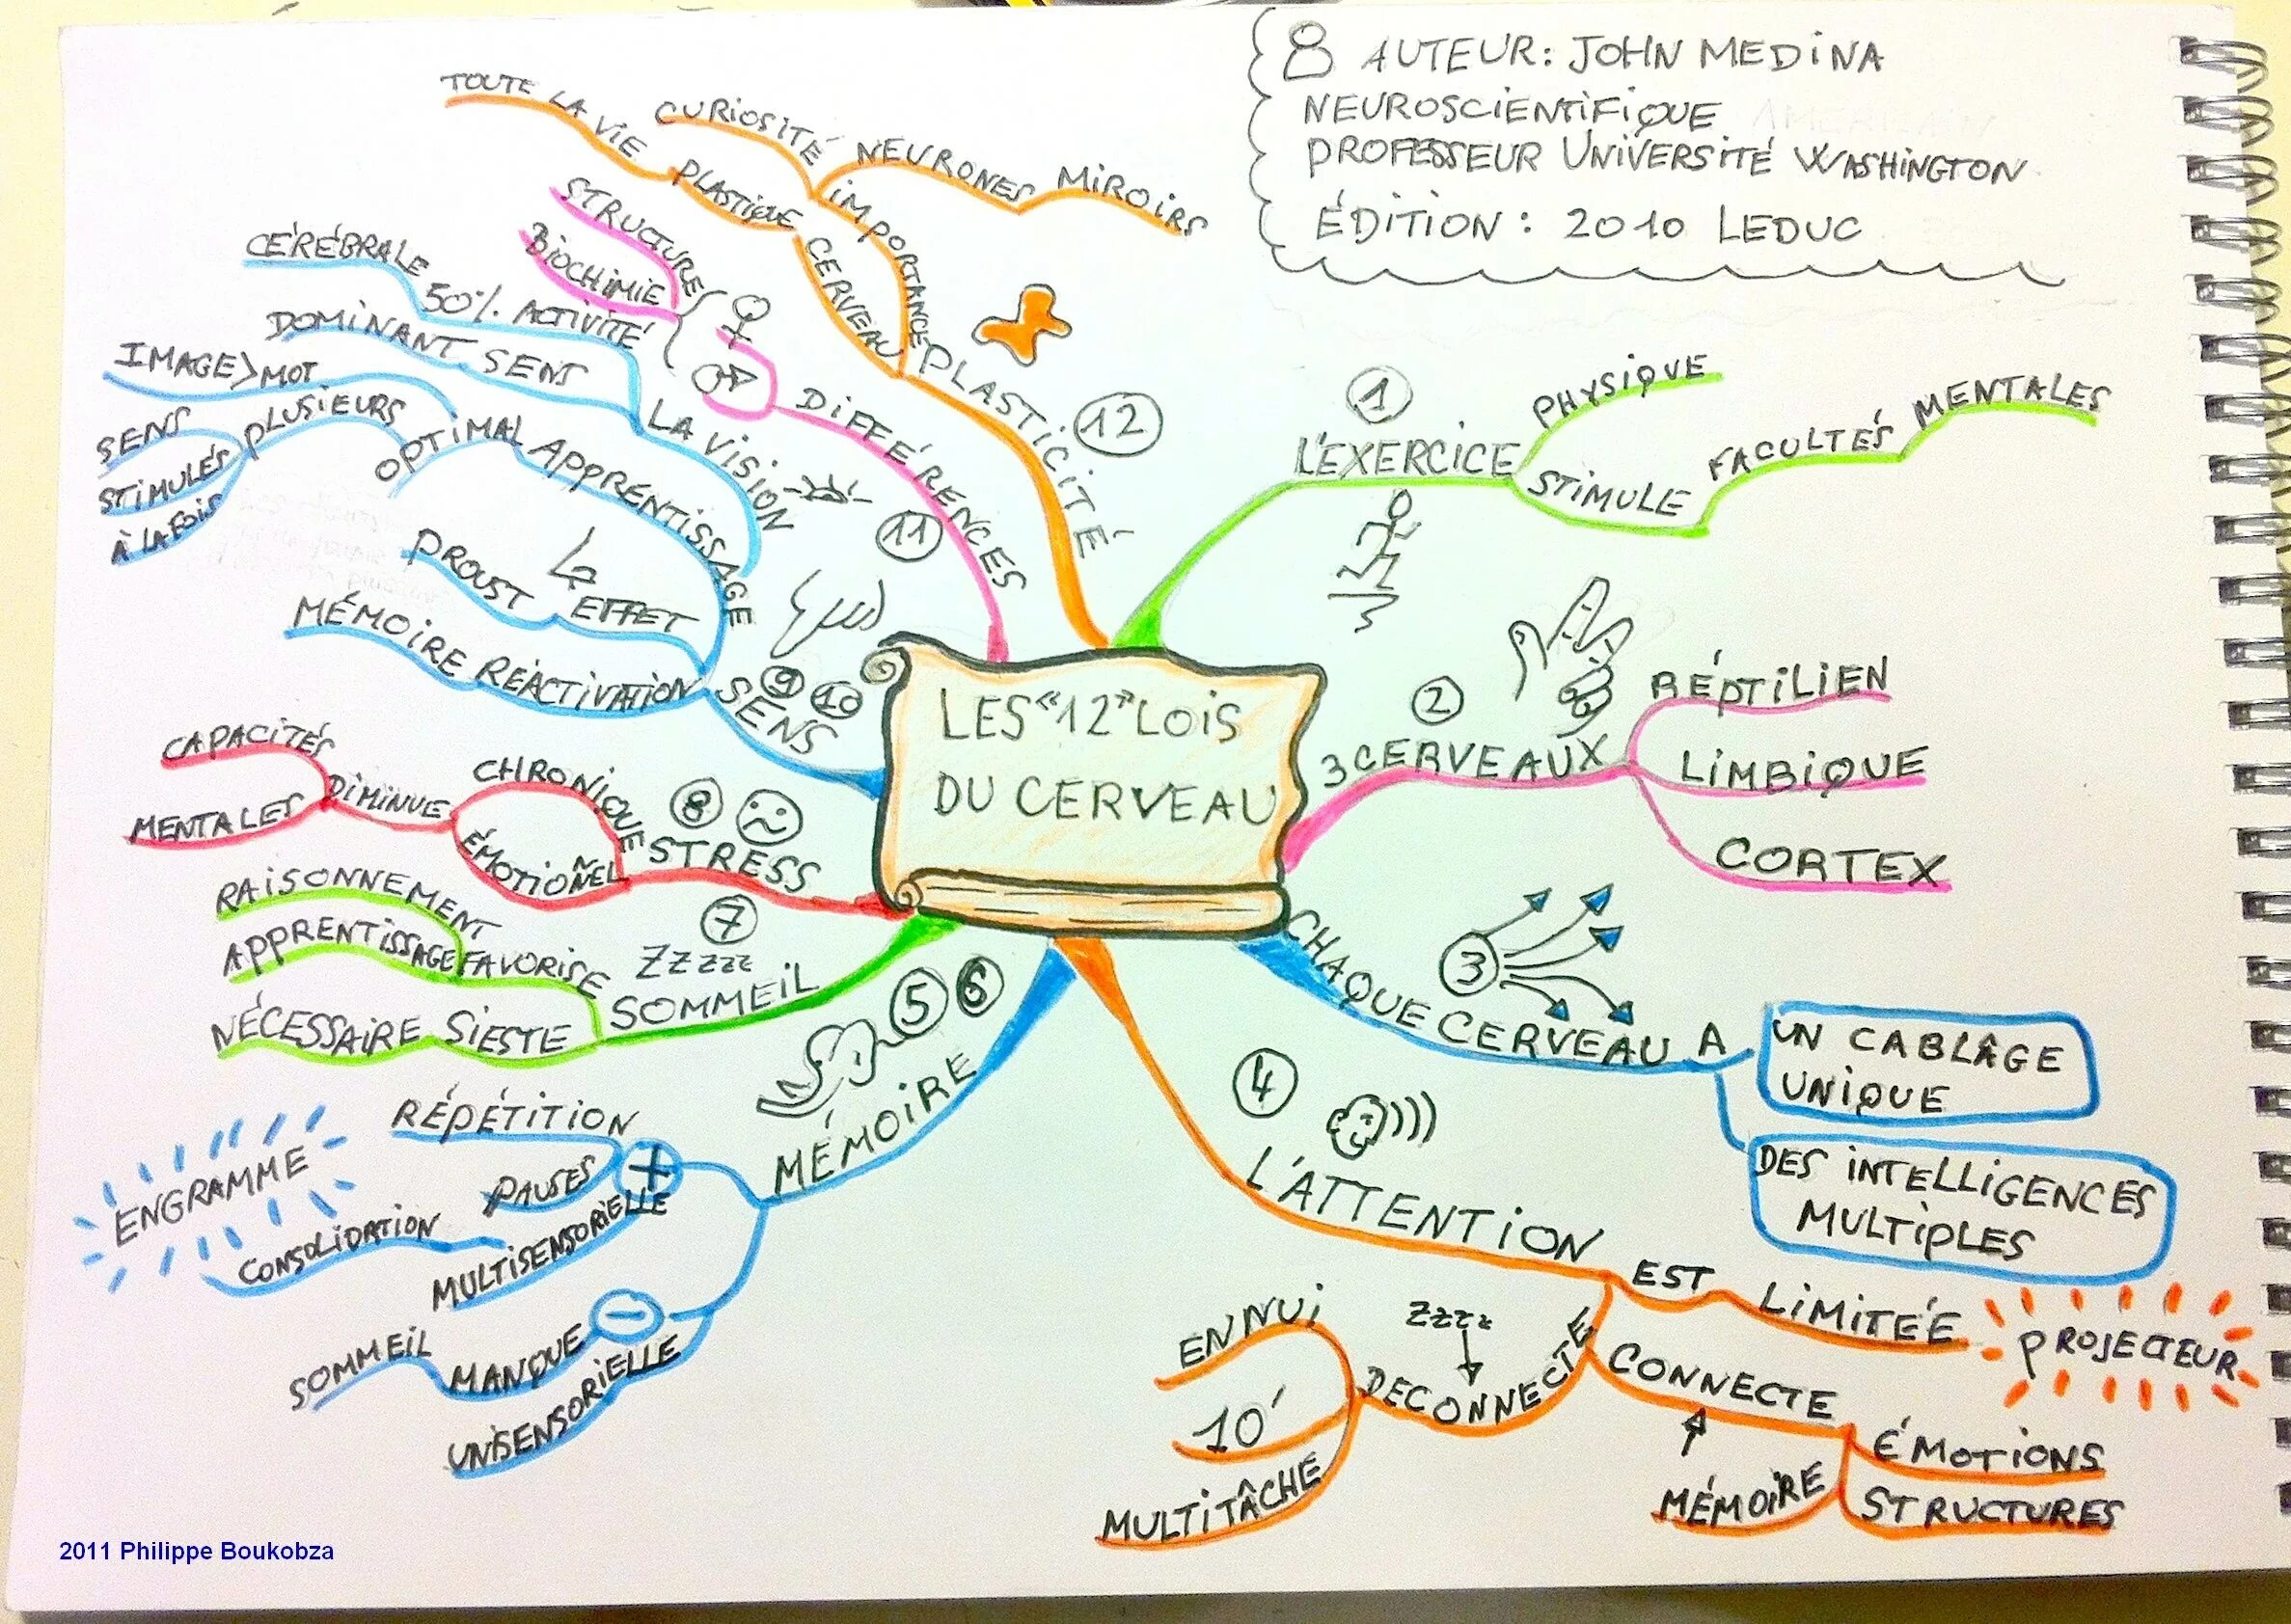 AUTEUR: JOHN MEDINA
NEUROSCIENTIFIQUE
PROFESSEUR UNIVERSITÉ WASHINGTON
ÉDITION: 2010 LEDUC
LES "12" LOIS
DU CERVEAU
1
L'EXERCICE
PHYSIQUE
STIMULE
FACULTÉS
MENTALES
2
3 CERVEAUX
RÉPTILIEN
LIMBIQUE
CORTEX
3
CHAQUE CERVEAU A
UN CABLÂGE
UNIQUE
DES INTELLIGENCES
MULTIPLES
4
L'ATTENTION
EST
LIMITÉE
PROJECTEUR
CONNECTE
ÉMOTIONS
STRUCTURES
MÉMOIRE
DECONNECTE
ZZZZ
ENNUI
10'
MULTITÂCHE
5 6
MÉMOIRE
+
RÉPÉTITION
PAUSES
MULTISENSORIELLE
CONSOLIDATION
ENGRAMME
-
MANQUE
SOMMEIL
UNISENSORIELLE
7
ZZZZZ
SOMMEIL
FAVORISE
RAISONNEMENT
APPRENTISSAGE
SIESTE
NÉCESSAIRE
8
STRESS
CHRONIQUE
ÉMOTIOÑEL
DIMINUE
CAPACITÉS
MENTALES
9 10
SENS
LA VISION
50% ACTIVITÉ
CÉRÉBRALE
SENS
DOMINANT
APPRENTISSAGE
OPTIMAL
IMAGE>MOT
PLUSIEURS
SENS
STIMULÉS
À LA FOIS
EFFET
PROUST
RÉACTIVATION
MÉMOIRE
11
DIFFÉRENCES
♀
♂
STRUCTURE
BIOCHIMIE
12
PLASTICITÉ
CERVEAU
PLASTIQUE
TOUTE LA VIE
IMPORTANCE
CURIOSITÉ
NEURONES
MIROIRS
2011 Philippe Boukobza